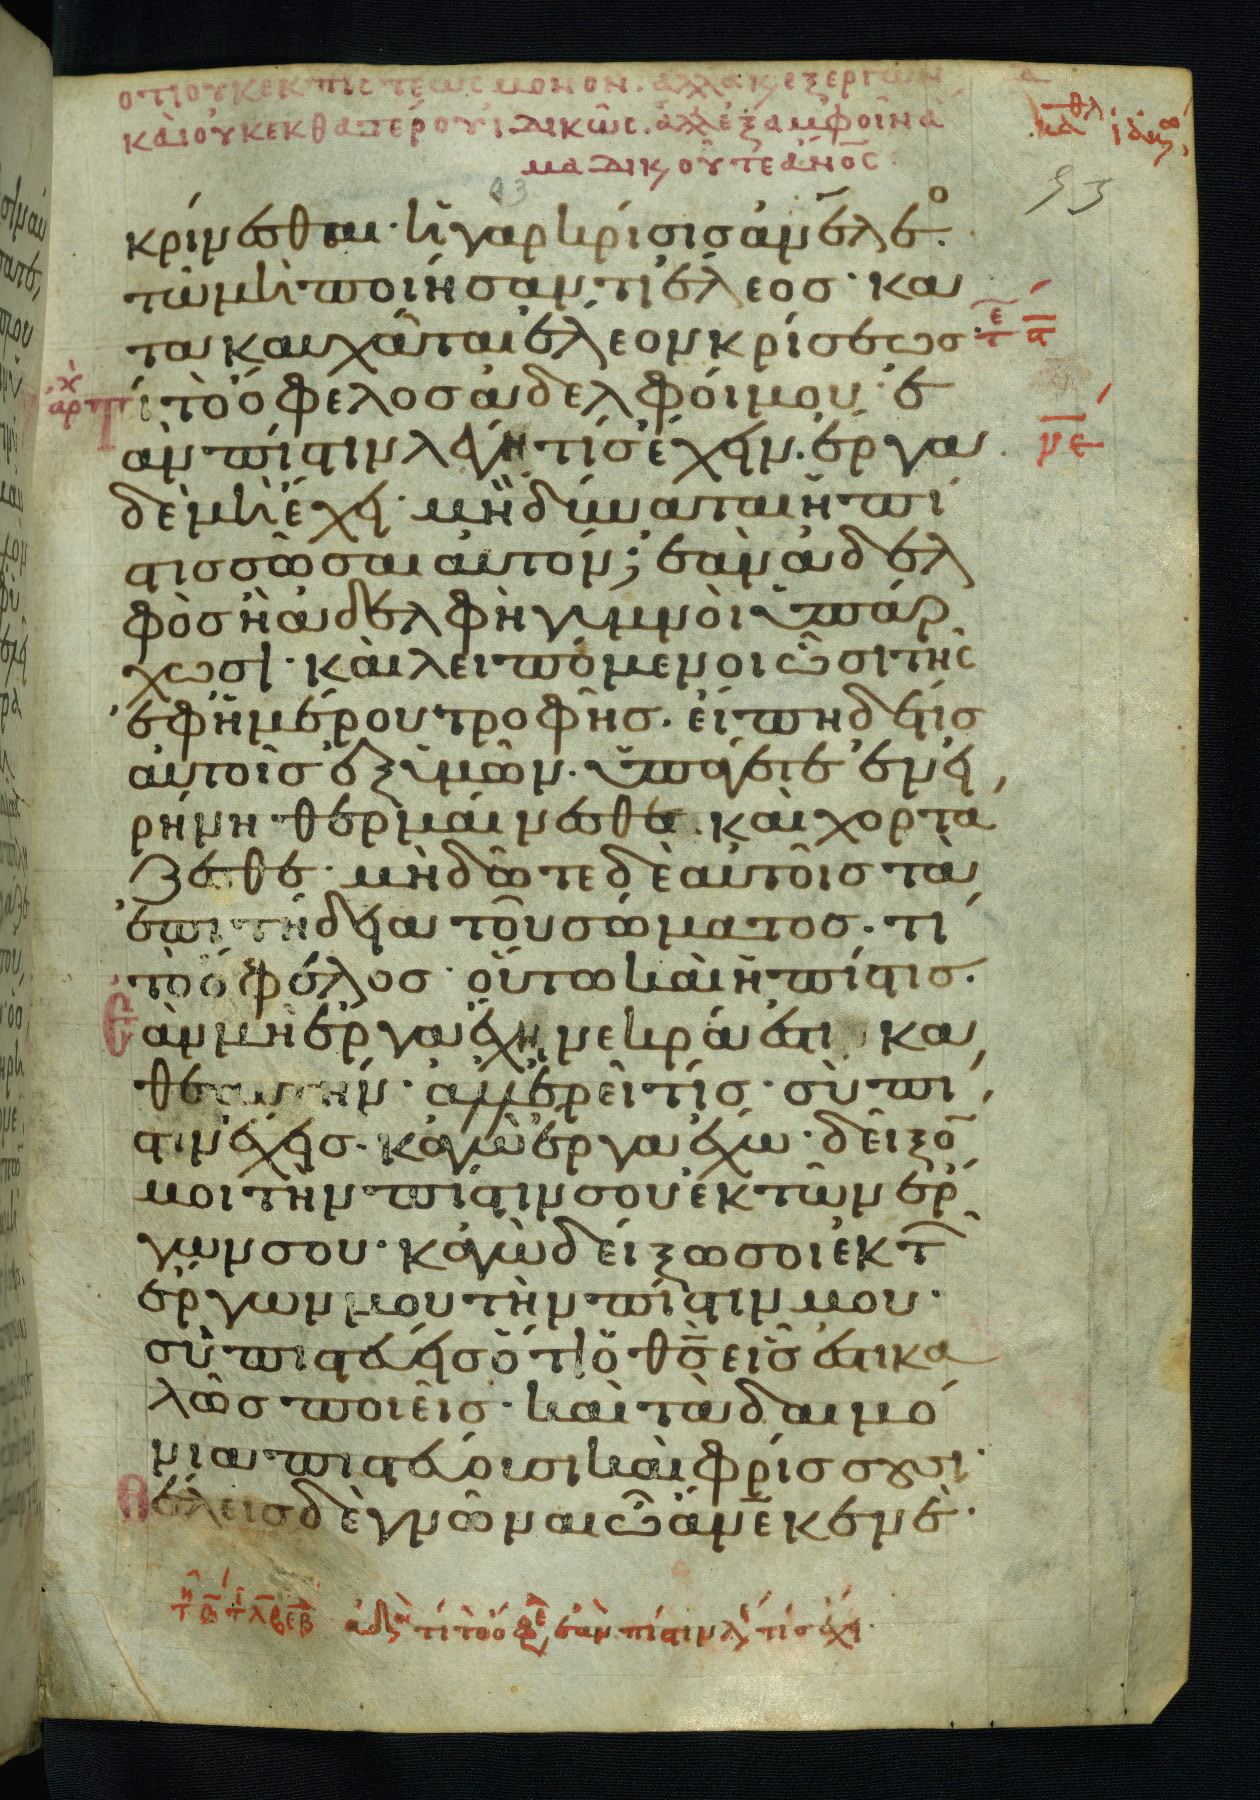 ὅτι οὐκ ἐκ πίστεως μόνον. ἀλλὰ κ ἐξ ἔργων
καὶ οὐκ ἐκ θατέρου ἰδικῶς. ἀλλ ἐξ ἀμφοῖν ἅ
μα δικοῦτε ἄνος
κα ι
93
κρίνεσθαι· ἡ γὰρ κρίσις ἀνέλεο
τῶ μὴ ποιήσαντι ἔλεος· κα
τακαυχᾶται ἔλεον κρίσεως·
τε α
αρχ
Τί τὸ ὄφελος ἀδελφοί μου· ἐ
ὰν πίστιν λέγη τίς ἔχειν. ἔργα
με
δὲ μὴ ἔχη· μὴ δύναται ἡ πί
στις σῶσαι αὐτόν; ἐὰν ἀδελ
φὸς ἢ ἀδελφὴ γυμνοὶ ὑπάρ
χωσι· καὶ λειπόμενοι ὦσι τῆς
ἐφημέρου τροφῆς. εἴπη δέ τίς
αὐτοῖς ἐξ ὑμῶν. ὑπάγετε ἐν εἰ
ρήνη· θερμαίνεσθε. καὶ χορτά
ζεσθε· μὴ δῶτε δὲ αὐτοῖς τὰ
ἐπιτήδεια τοῦ σώματος. τί
τὸ ὄφελος· οὕτω καὶ ἡ πίστις.
Ἐὰν μὴ ἔργα ἔχη νεκρά ἐστι κα
θεαυτήν· ἀλλ ἐρεῖ τίς· σὺ πί
στιν ἔχεις. κἀγὼ ἔργα ἔχω· δεῖξό
μοι τὴν πίστιν σου ἐκ τῶν ἔρ
γων σου· κἀγὼ δείξω σοι ἐκ τ
ἔργων μου τὴν πίστιν μου·
σὺ πιστεύεις ὅτι ὁ θς εἷς ἐστι κα
λῶς ποιεῖς· καὶ τὰ δαιμό
νια πιστεύουσι καὶ φρίσσουσι·
Θέλεις δὲ γνῶναι ὦ ἄνε κενέ·
ἀδε τί τὸ ὄφε ἐὰν πίστιν λε τίς ἔχει